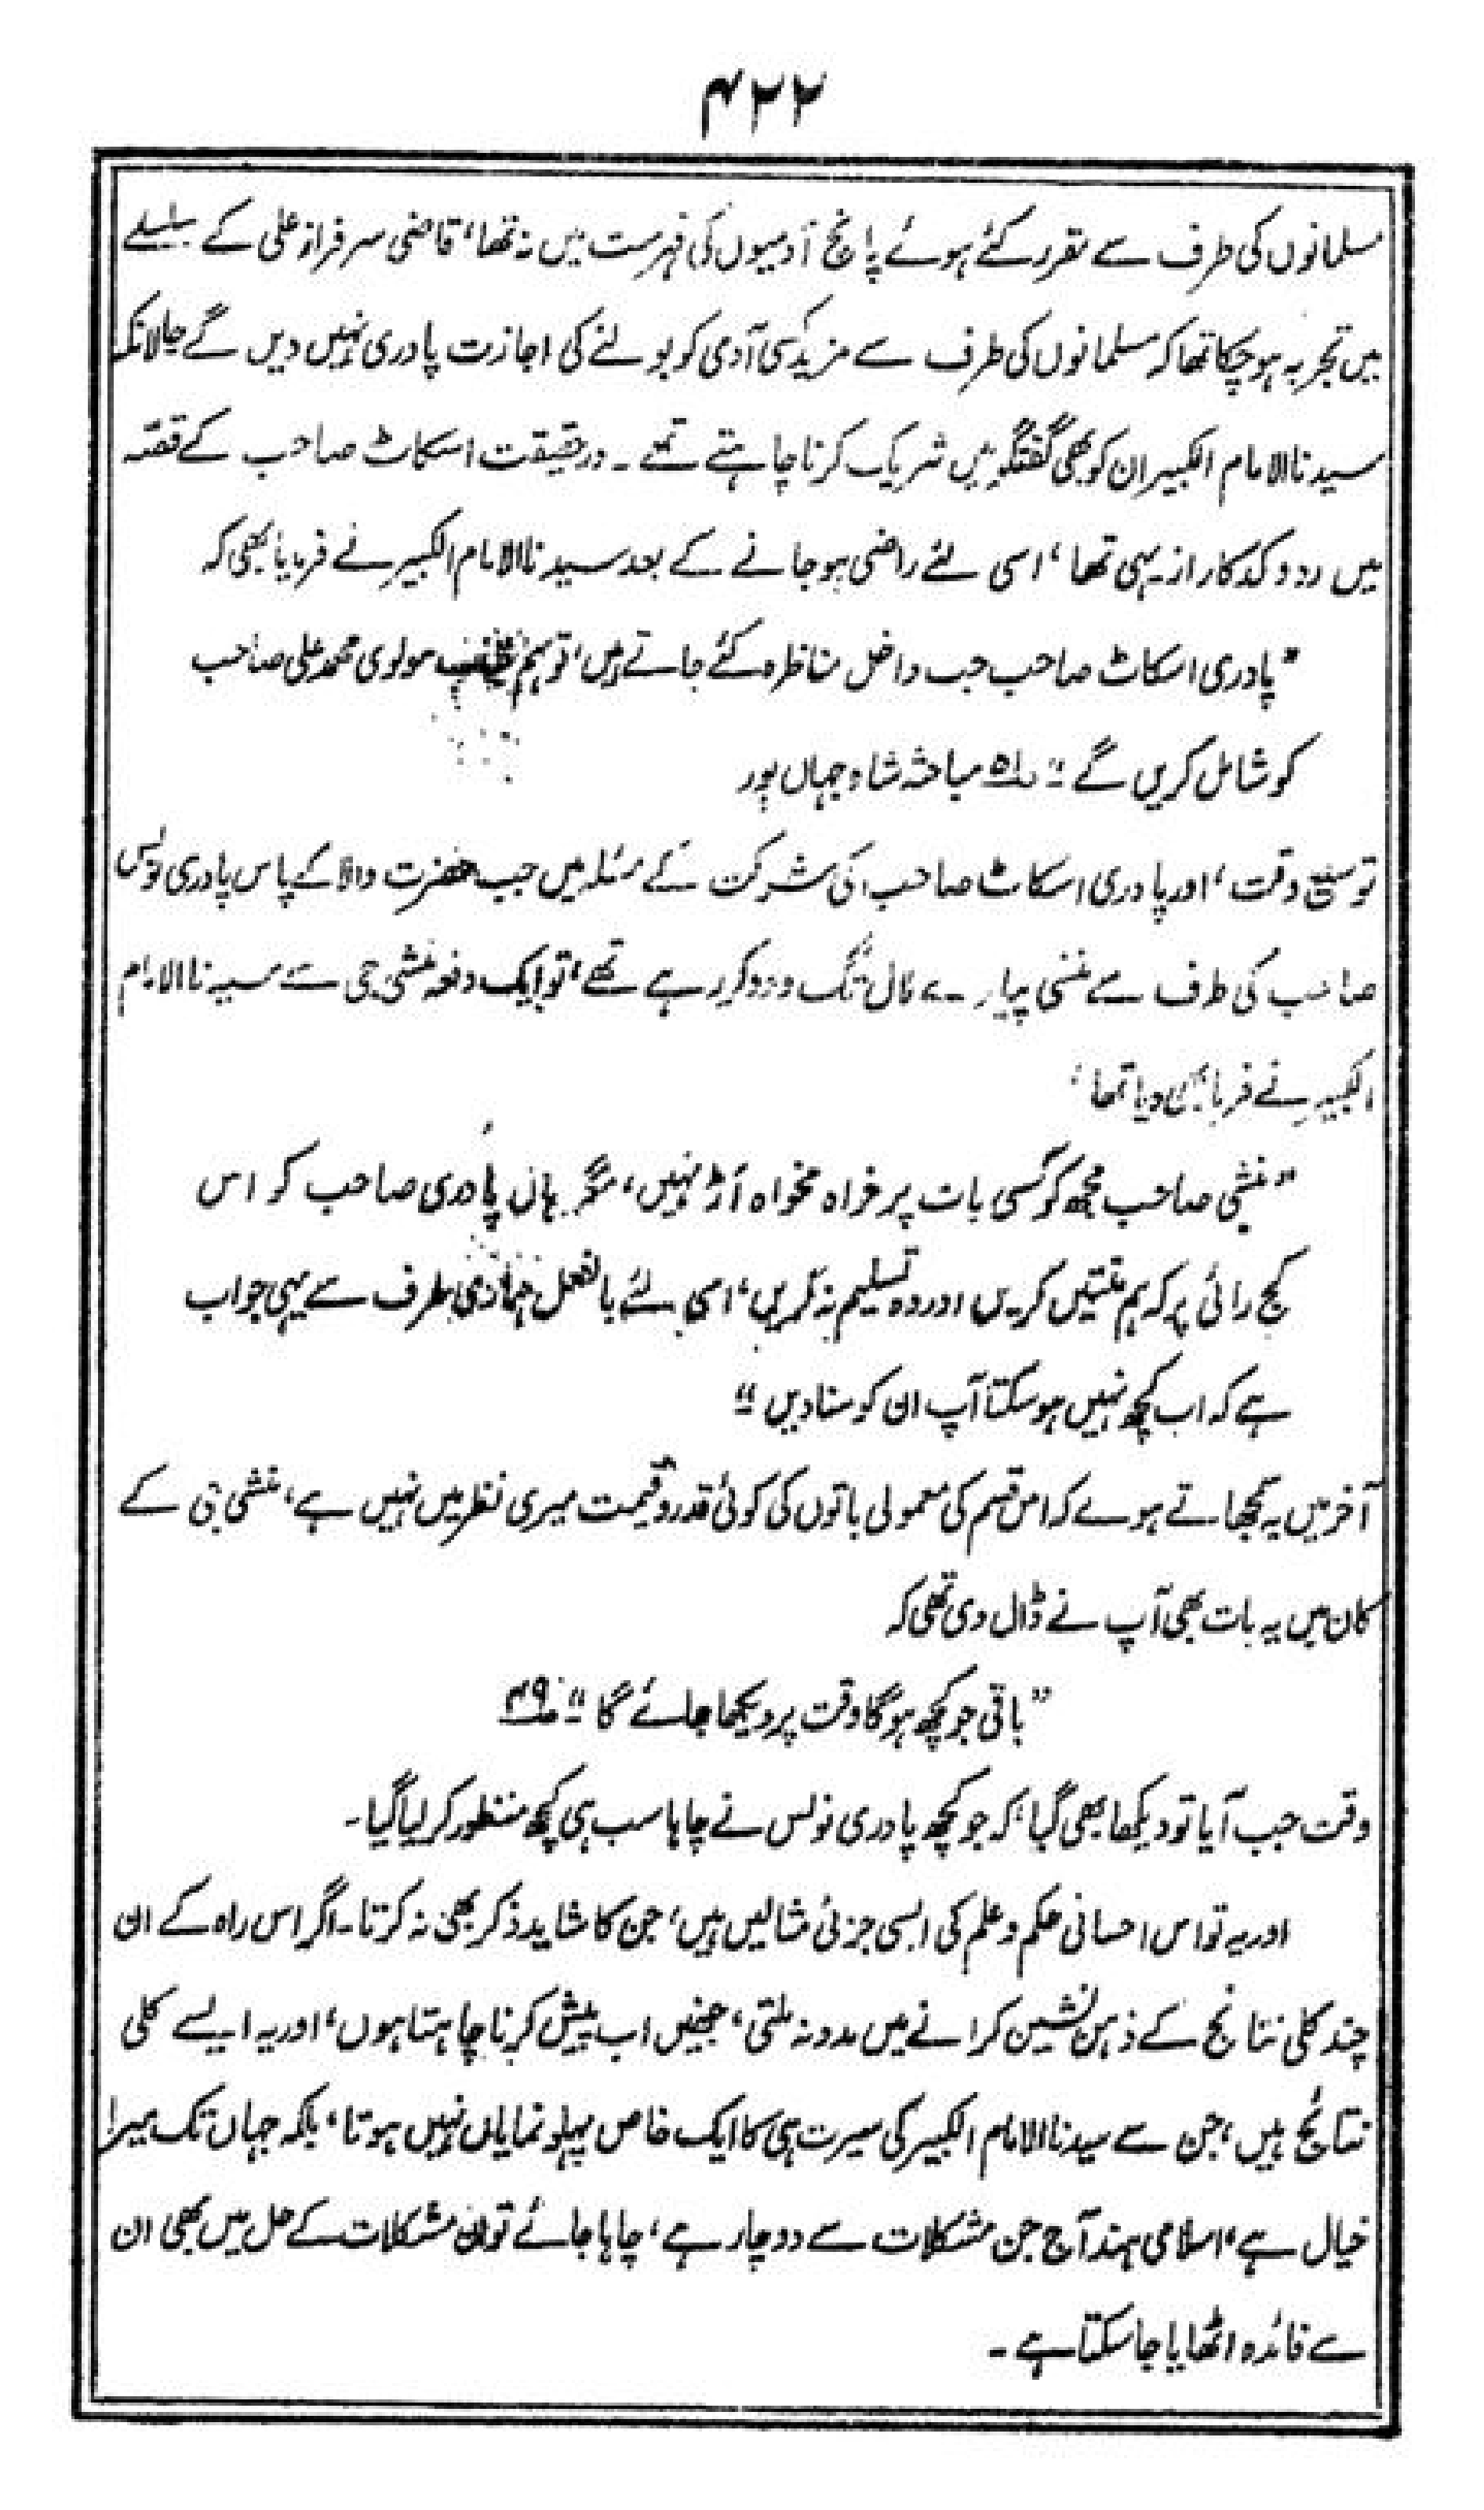 ۴۲۲
مسلمانوں کی طرف سے مقرر کئے ہوئے پانچ آدمیوں کی فہرست میں نہ تھا، قاضی سرفراز علی کے سلسلے
میں تجربہ ہو چکا تھا کہ مسلمانوں کی طرف سے مزید کسی آدمی کو بولنے کی اجازت پادری نہیں دیں گے حالانکہ
سیدنا الامام الکبیر ان کو بھی گفتگو میں شریک کرنا چاہتے تھے۔ درحقیقت اسکاٹ صاحب کے قصّہ
میں رد و کد کا راز یہی تھا، اسی لئے راضی ہو جانے کے بعد سیدنا الامام الکبیر نے فرمایا بھی کہ
"پادری اسکاٹ صاحب جب داخل مناظرہ کئے جاتے ہیں، تو ہم مولوی محمد علی صاحب
کو شامل کریں گے" ص۵۱ مباحثہ شاہ جہاں پور
توسیع وقت، اور پادری اسکاٹ صاحب کی شرکت کے مسئلہ میں جب حضرت والا کے پاس پادری نولس
صاحب کی طرف سے منشی پیارے لال تگ ودو کر رہے تھے، تو ایک دفعہ منشی جی سے سیدنا الامام
الکبیر نے فرما بھی دیا تھا،
"منشی صاحب مجھ کو کسی بات پر خواہ مخواہ اڑ نہیں، مگر ہاں پادری صاحب کو اس
کج رائی پر کہ ہم منتیں کریں اور وہ تسلیم نہ کریں، اسی لئے بالفعل ہماری طرف سے یہی جواب
ہے کہ اب کچھ نہیں ہو سکتا آپ ان کو سنا دیں"
آخر میں یہ سمجھاتے ہوئے کہ اس قسم کی معمولی باتوں کی کوئی قدر و قیمت میری نظر میں نہیں ہے، منشی جی کے
کان میں یہ بات بھی آپ نے ڈال دی تھی کہ
"باقی جو کچھ ہوگا وقت پر دیکھا جائے گا" ص۴۹
وقت جب آیا تو دیکھا بھی گیا، کہ جو کچھ پادری نولس نے چاہا سب ہی کچھ منظور کر لیا گیا۔
اور یہ تو اس احسانی حکم و علم کی ایسی جزئی مثالیں ہیں، جن کا شاید ذکر بھی نہ کرتا۔ اگر اس راہ کے ان
چند کلی نتائج کے ذہن نشین کرانے میں مدد نہ ملتی، جنھیں اب پیش کرنا چاہتا ہوں، اور یہ ایسے کلی
نتائج ہیں، جن سے سیدنا الامام الکبیر کی سیرت ہی کا ایک خاص پہلو نمایاں نہیں ہوتا، بلکہ جہاں تک میرا
خیال ہے، اسلامی ہند آج جن مشکلات سے دوچار ہے، چاہا جائے تو ان مشکلات کے حل میں بھی ان
سے فائدہ اٹھایا جا سکتا ہے۔